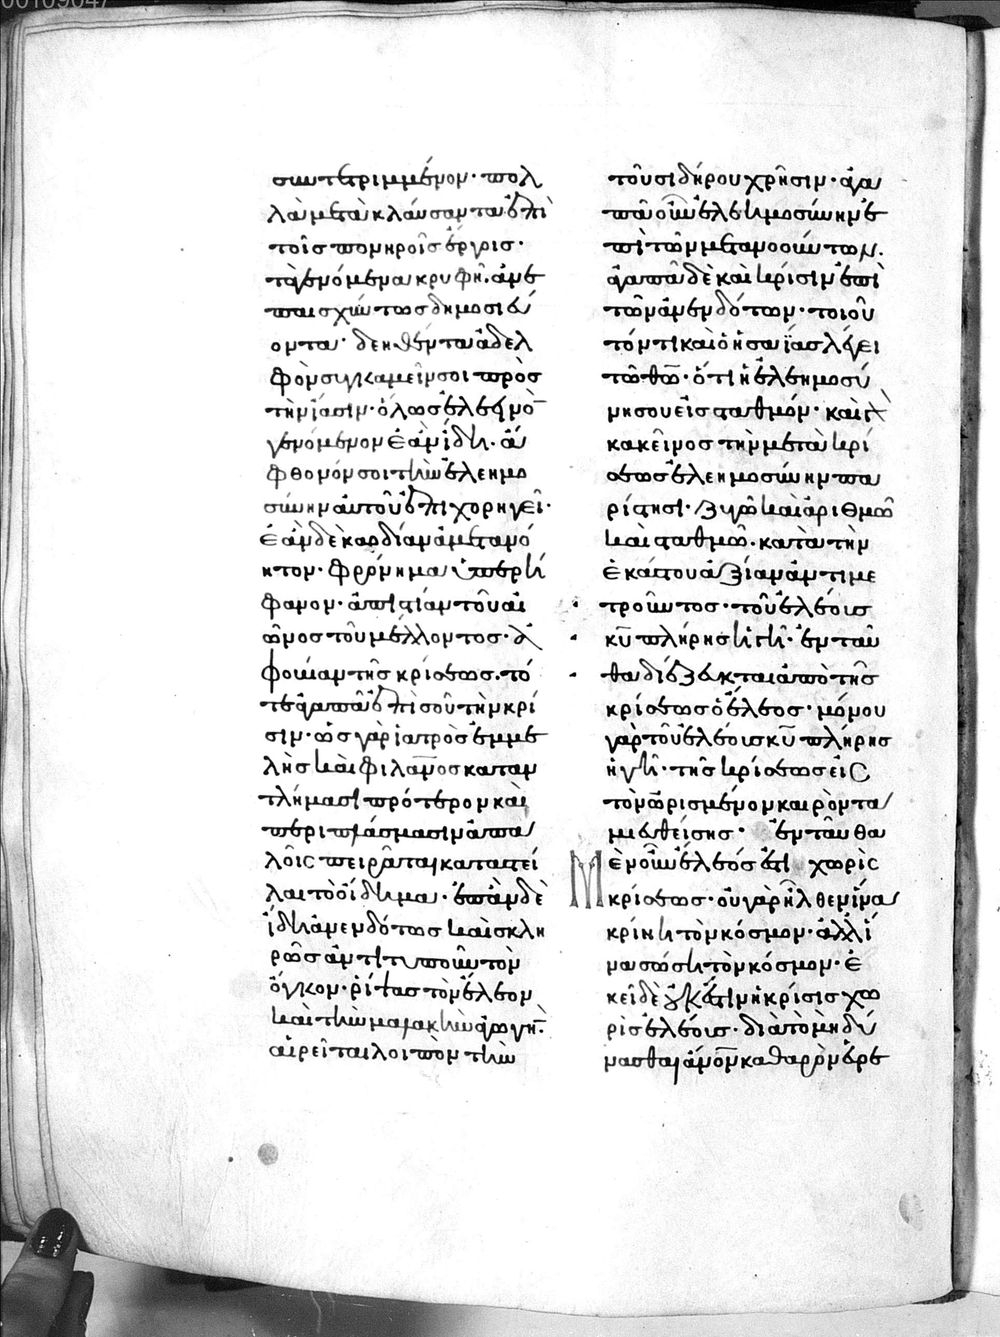 00109047
συντετριμμένον· πολ
λὰ μετὰ κλαύσαντα ἐπὶ
τοῖς πονηροῖς ἔργοις·
τὰ γενόμενα κρυφῆ. ἀνε
παισχύντως δημοσιεύ
οντα· δεηθέντα ἀδελ
φῶν συγκαμεῖν σοι πρὸς
τὴν ἴασιν· ὅλως ἐλεεινὸ
γενόμενον ἐὰν ἴδη. ἄ
φθονόν σοι τὴν ἐλεημο
σύνην αὐτοῦ ἐπιχορηγεῖ·
ἐὰν δὲ καρδίαν ἀμετανό
ητον· φρόνημα ὑπερή
φανον· ἀπιστίαν τοῦ αἰ
ῶνος τοῦ μέλλοντος· ἀ
φοβίαν τῆς κρίσεως. τό
τε ἀγαπᾶ ἐπὶ σοῦ τὴν κρί
σιν· ὡς γὰρ ἰατρὸς ἐμμε
λὴς καὶ φιλανος καταν
τλήμασι πρότερον καὶ
περιπλάσμασιν ἁπα
λοῖς πειρᾶται καταστεῖ
λαι τὸ οἴδημα· ἐπὰν δὲ
ἴδη ἀνενδότως καὶ σκλη
ρῶς ἀντιτυποῦντον
ὄγκον· ῥίψας τὸ ἔλεον
καὶ τὴν μαλακὴν ἀγωγήν·
αἱρεῖται λοιπὸν τὴν
τοῦ σιδήρου χρῆσιν· ἀγα
πᾶ οὖν ἐλεημοσύνην ἐ
πὶ τῶν μετανοούντων.
ἀγαπᾶ δὲ καὶ κρίσιν ἐπὶ
τῶν ἀνενδότων· τοιοῦ
τόν τι καὶ ὁ ἡσαΐας λέγει
τῶ θω· ὅτι ἡ ἐλεημοσύ
νη σου εἰς σταθμόν· καὶ γὰρ
κἀκεῖνος τὴν μετὰ κρί
σεως ἐλεημοσύνην πα
ρίστησι· ζυγῶ καὶ ἀριθμῶ
καὶ σταθμῶ. κατὰ τὴν
ἑκάστου ἀξίαν ἀντιμε
τροῦντος· τοῦ ἐλέους
κυ πλήρης ἡ γῆ· ἐνταῦ
θα διέζευκται ἀπὸ τῆς
κρίσεως ὁ ἔλεος· μόνου
γὰρ τοῦ ἐλέους κυ πλήρης
ἡ γῆ· τῆς κρίσεως εἰς
τὸν ὡρισμένον καιρὸν τα
μιευθείσης· ἐνταῦθα
Μὲν οὖν ἔλεός ἐστι χωρὶς
κρίσεως· οὐ γὰρ ἦλθεν ἵνα
κρίνη τὸν κόσμον· ἀλλ' ἵ
να σώση τὸν κόσμον· ἐ
κεῖ δὲ οὐκ ἔστιν ἡ κρίσις χω
ρὶς ἐλέους· διὰ τὸ μὴ δύ
νασθαι ἀνον καθαρὸν εὑρε